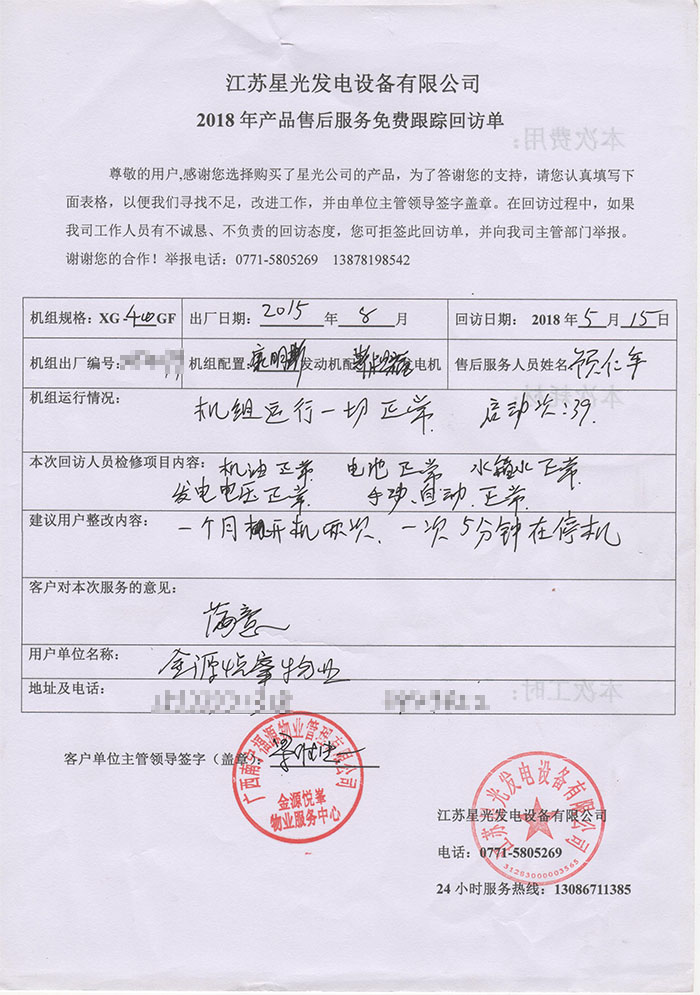 江苏星光发电设备有限公司
2018 年产品售后服务免费跟踪回访单
尊敬的用户,感谢您选择购买了星光公司的产品，为了答谢您的支持，请您认真填写下
面表格，以便我们寻找不足，改进工作，并由单位主管领导签字盖章。在回访过程中，如果
我司工作人员有不诚恳、不负责的回访态度，您可拒签此回访单，并向我司主管部门举报。
谢谢您的合作！举报电话：0771-5805269 13878198542
机组规格：XG-400GF 出厂日期：2015 年 8 月 回访日期： 2018 年 5 月 15 日
机组出厂编号： 机组配置：康明斯 发动机配 发电机 售后服务人员姓名
机组运行情况：
机组运行一切正常 启动次：39.
本次回访人员检修项目内容：机油正常 电池正常 水箱水正常
发电电压正常 手动、自动、正常
建议用户整改内容：一个月开机两次、一次5分钟在停机
客户对本次服务的意见：
满意
用户单位名称：金源悦峯物业
地址及电话：
客户单位主管领导签字（盖章）：
广西南宁福源物业管理有限公司
金源悦峯
物业服务中心
江苏星光发电设备有限公司
31283000003565
江苏星光发电设备有限公司
电话：0771-5805269
24 小时服务热线：13086711385
本次费用：
本次耗材：
本次工时：